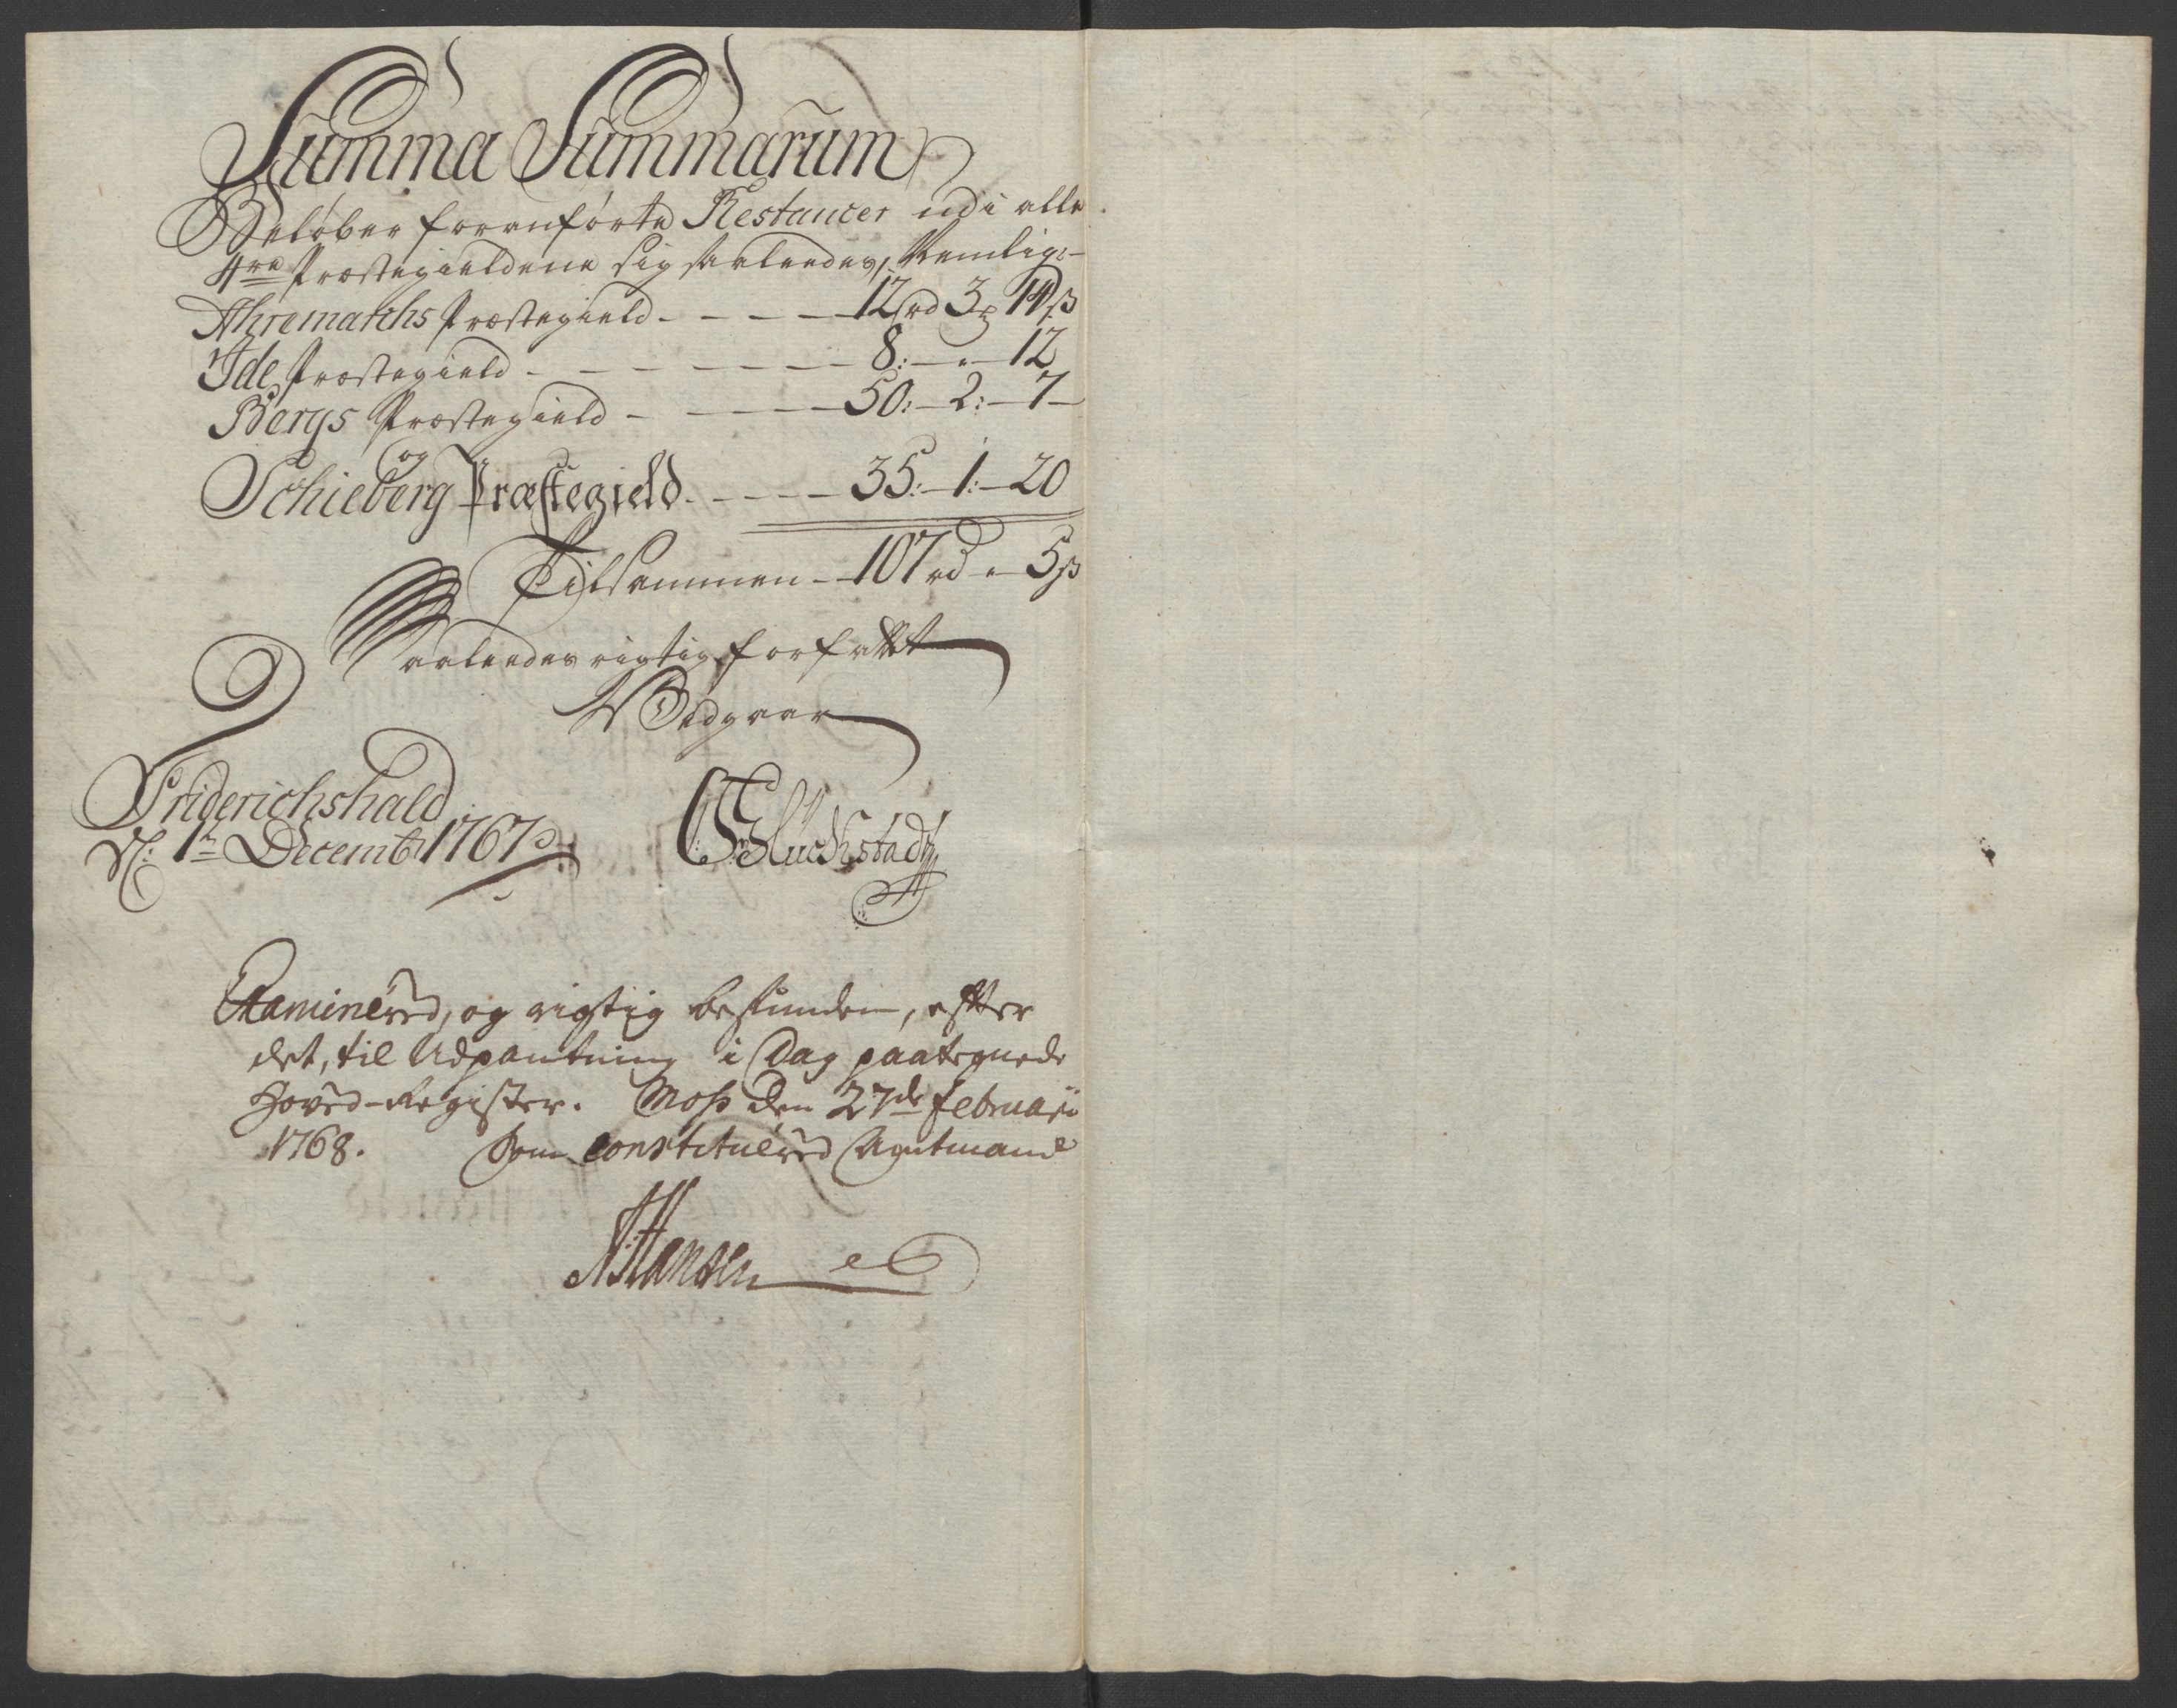 Summa Summarum
Beløber foranførte Restancer udi alle
4re Præstegieldene sig saaledes, Nemlig:
Ahremarchs Præstegield - - - - 12 rd 3 14 ß
Ide Præstegield - - - - - - - 8: - " - 12
Bergs Præstegield - - - - - 50: - 2: - 7 -
og
Schieberg Præstegield - - - - 35: - 1: - 20
Tilsammen - 107 rd " 5 ß
Saaledes rigtig forfattet
Friderichshald
d: 1te Decembr 1767
Examinered, og rigtig befunden, efter
det, til Udpantning i Dag paategnede
Hoved-Register. Moss den 27de Februarii
1768. Som constituered Amtmand
NHansen